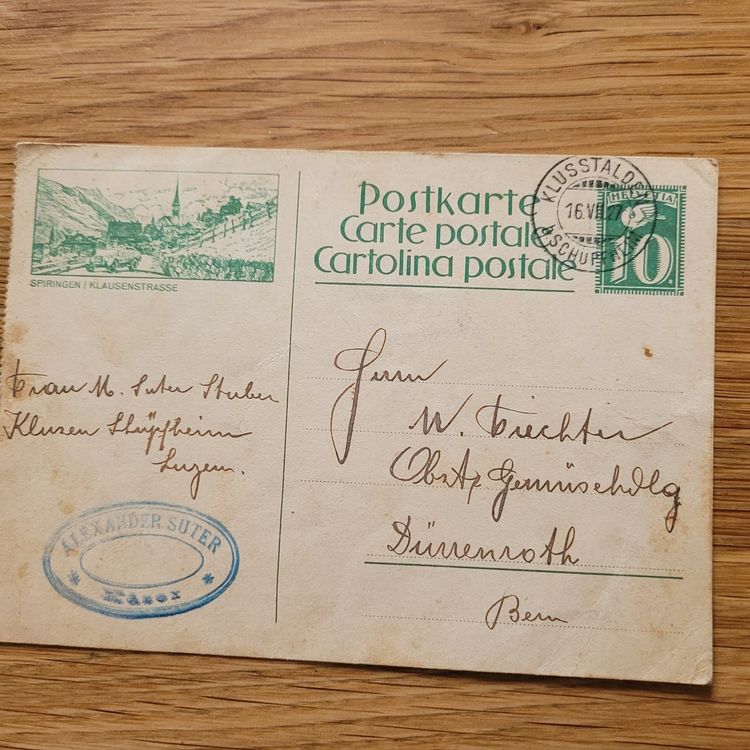 SPIRINGEN / KLAUSENSTRASSE
Postkarte
Carte postale
Cartolina postale
KLUSSTALDEN
16.VII.27
(SCHÜPFHEIM)
HELVETIA
10
Frau M. Suter Stuber
Klusen Schüpfheim
Luzern.
ALEXANDER SUTER
Herrn
W. Fiechter
Obst & Gemüsehdlg
Dürrenroth
Bern